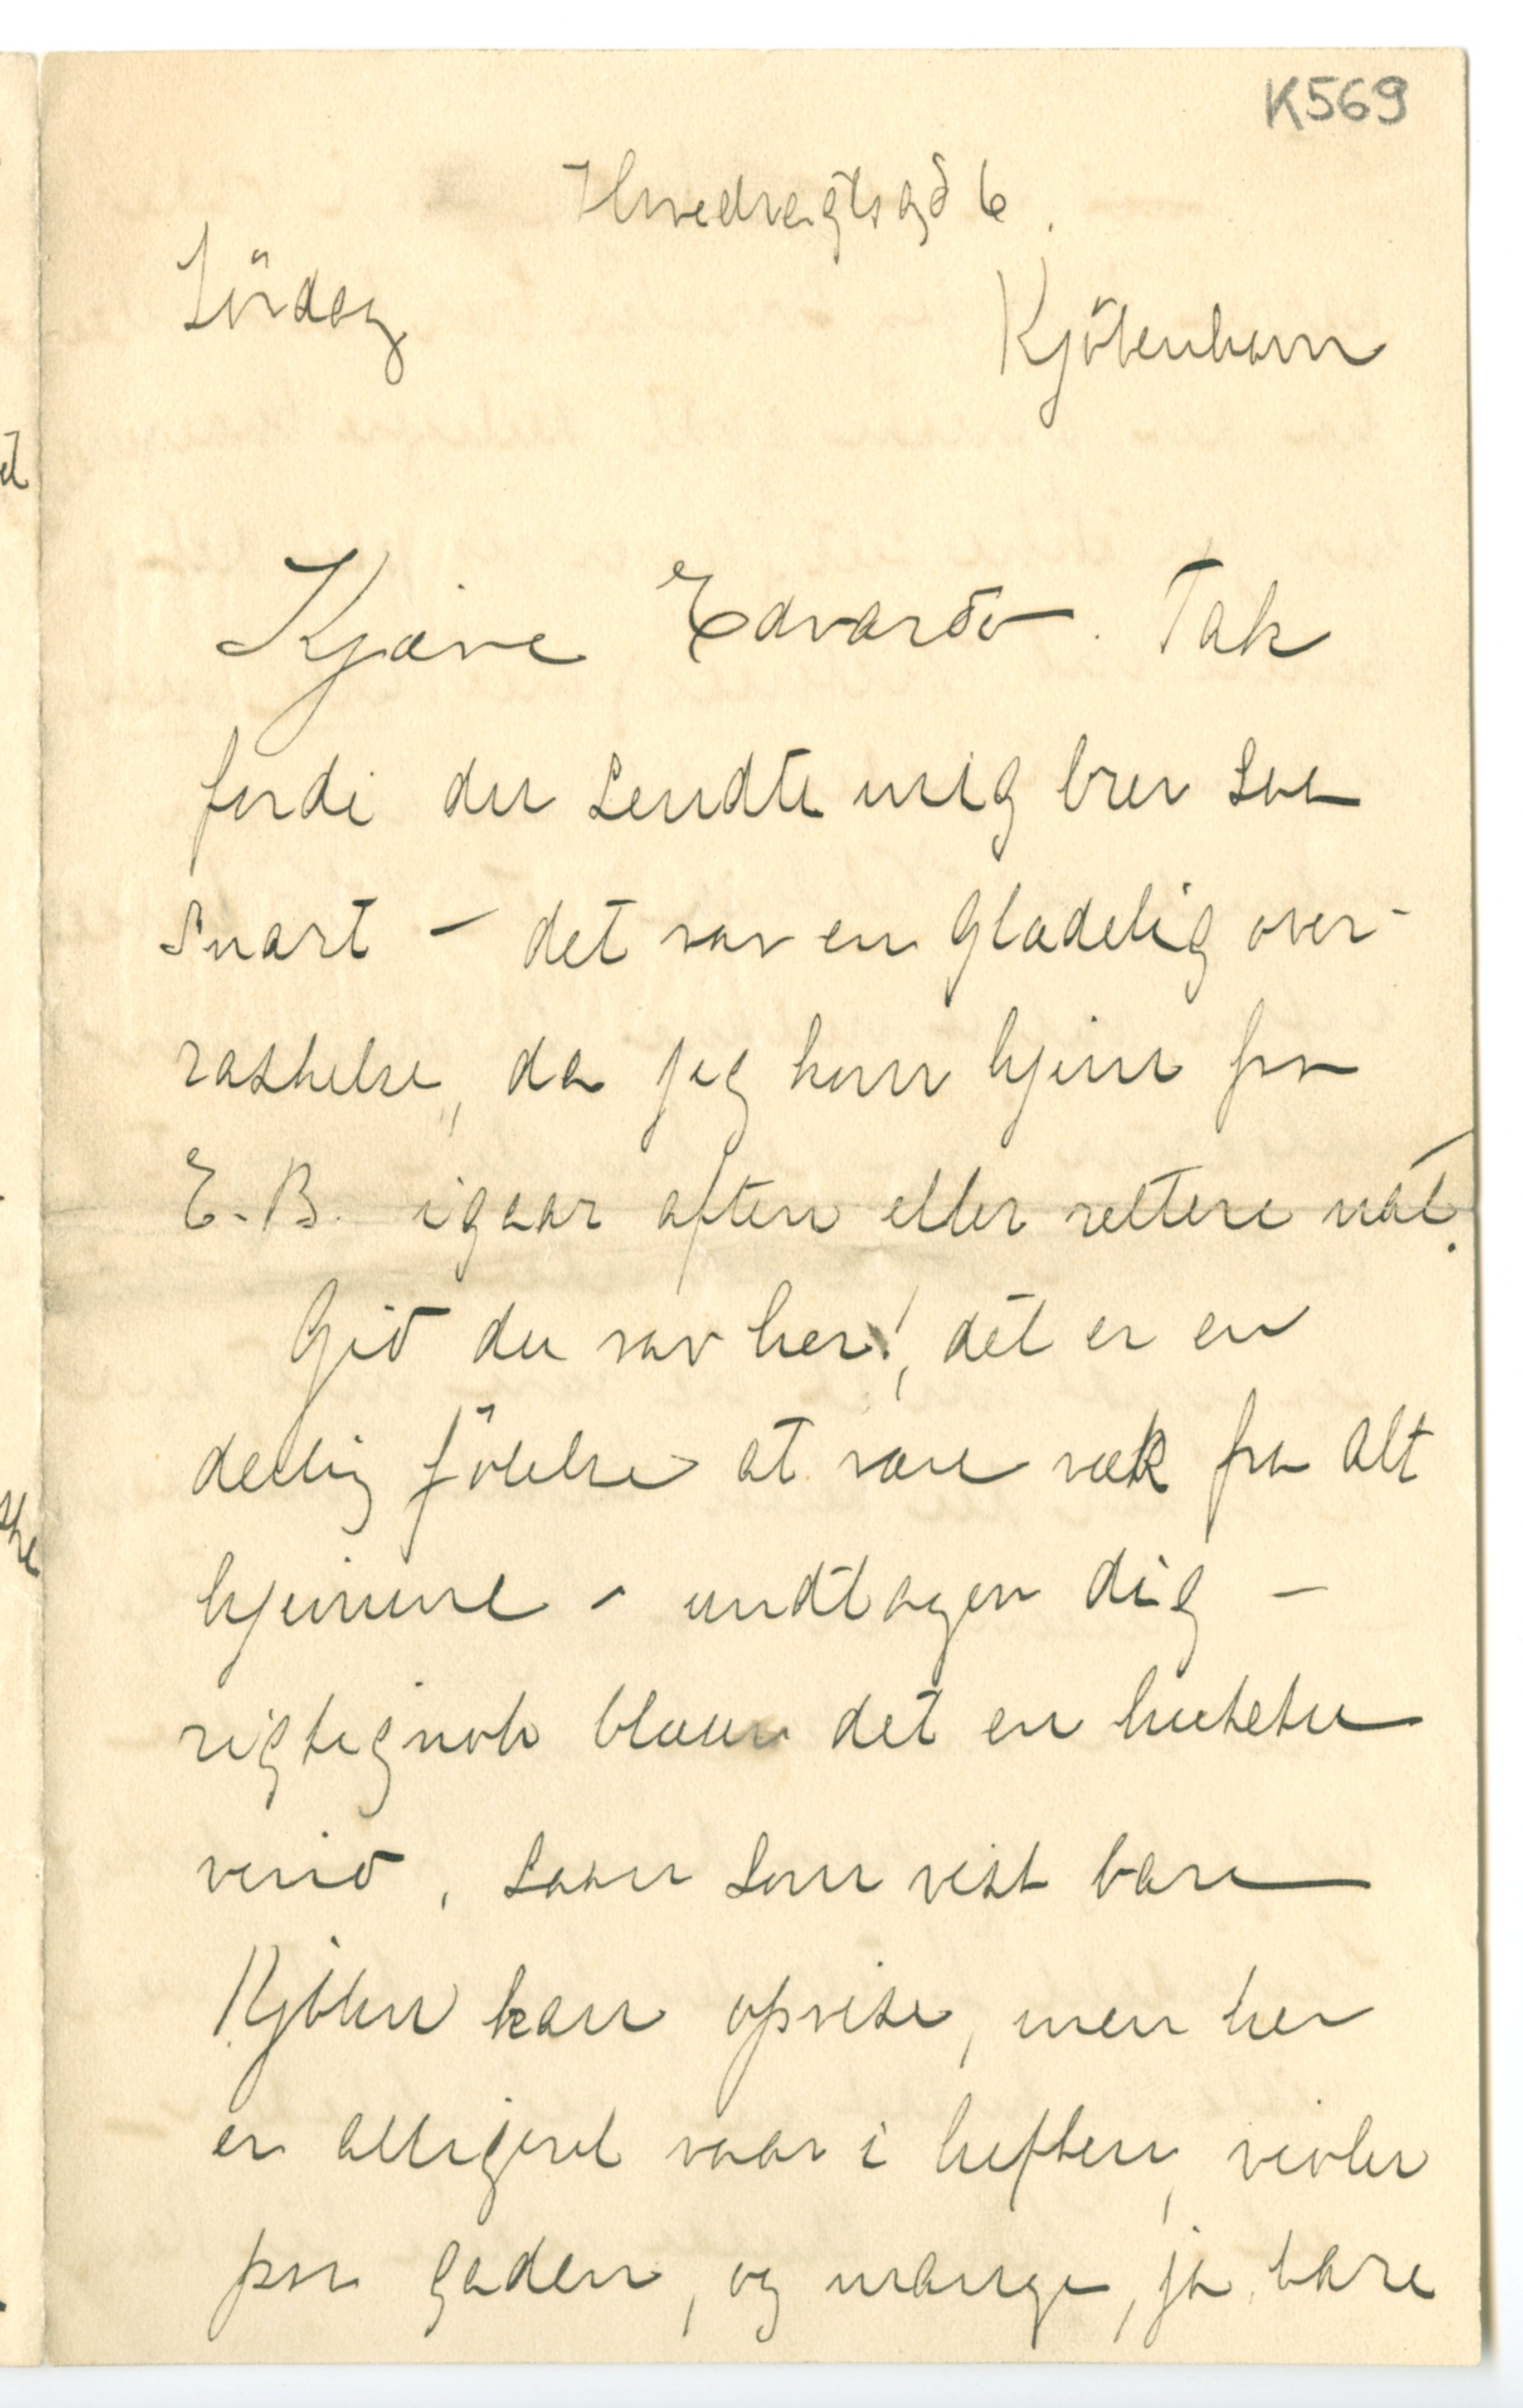 K569
Hovedvagtsgd 6.
Lördag
Kjöbenhavn
Kjære Edvard. Tak
fordi du sendte mig brev saa
snart – det var en glædelig over-
raskelse, da jeg kom hjem fra
E. B. igaar aften eller rettere nat.
Gid du var her!, det er en
deilig fölelse at være væk fra alt
hjemme – undtagen dig –
rigtignok blæser det en
vind, saan som vist bare
Kjöben kan opvise, men her
er alligevel vaar i luften, violer
paa gaden, og mange, ja bare